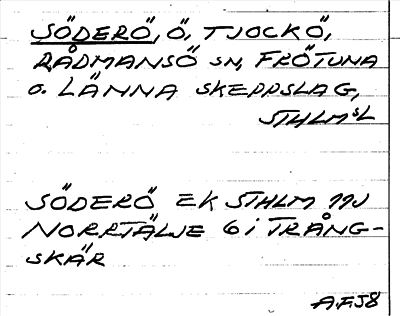 SÖDERÖ, Ö, TJOCKÖ,
RÅDMANSÖ SN, FRÖTUNA
O. LÄNNA SKEPPSLAG,
STHLMSL
SÖDERÖ EK STHLM 11J
NORRTÄLJE 6 i TRÅNG-
SKÄR
AFJ8